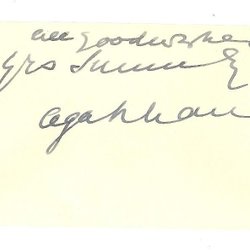 all goodwishes
yrs Sincerely
Aga Khan